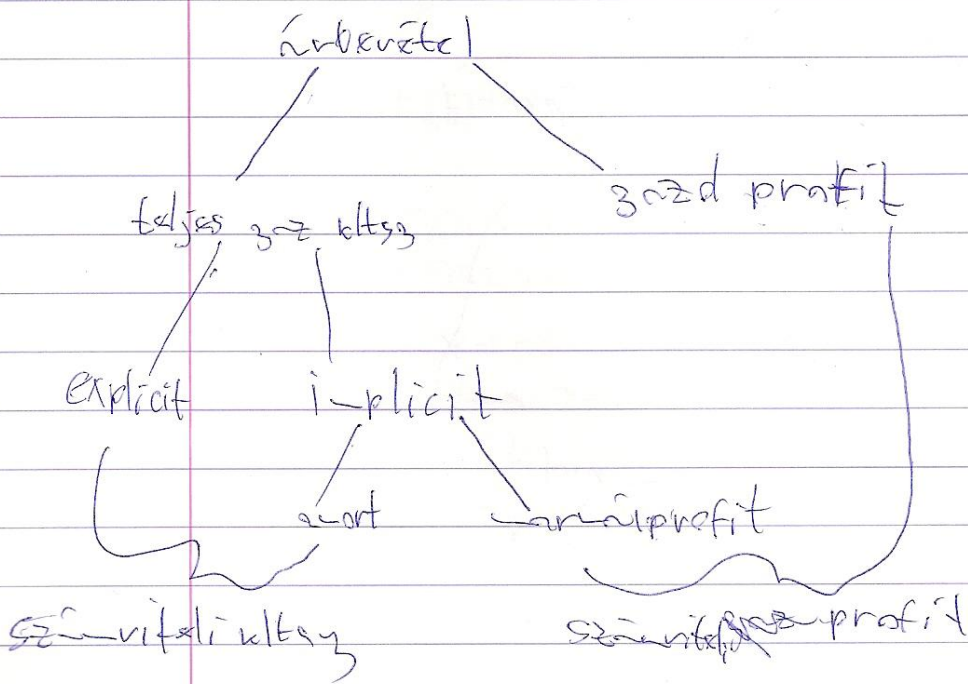 árbevétel
teljes gaz ktsg
gazd profit
explicit implicit
amort normálprofit
számviteli ktsg
számviteli profit